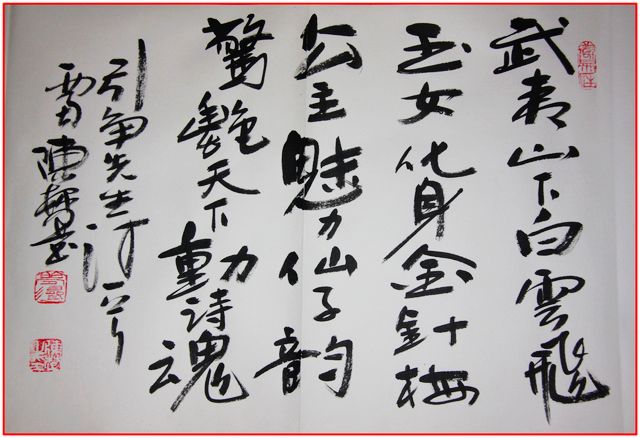 武夷山下白雲飛
玉女化身金針梅
公主魅力仙子韵
驚艷天下動詩魂
争先生诗
陳